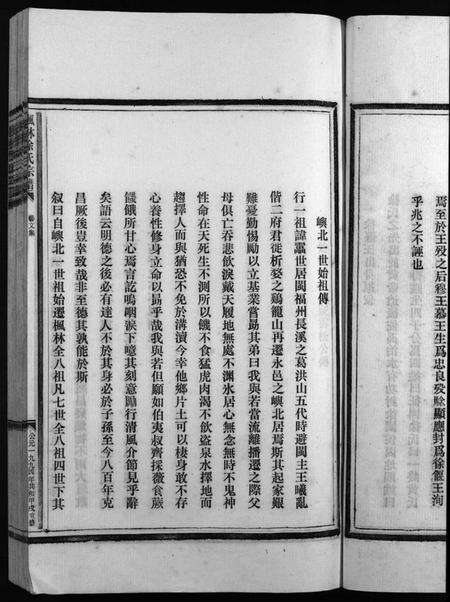 焉至於王歿之后穆王慕王生爲忠良歿餘顯應封爲徐偃王洵
乎兆之不誣也
嶼北一世始祖傳
行一祖諱㬎世居閩福州長溪之葛洪山五代時避閩主王曦亂
偕二府君徙析婺之鷄籠山再遷永邑之嶼北居焉斯其起家艱
難憂勤惕勵以立基業嘗勗其弟曰我與若當流離播遷之際父
母俱亡吞悲飲淚戴天履地無處不淵氷居心無念無時不鬼神
性命在天死生不測所以饑不食猛虎肉渴不飲盜泉水擇地而
趨擇人而與猶恐不免於溝瀆今幸他鄉片土可以棲身敢不存
心養性修身立命以勗乎哉我與若但願如伯夷叔齊採薇食蕨
饑餓所甘心焉言訖嗚咽淚下噫其刻意勵行清風介節見乎辭
矣語云明德之後必有達人不於其身必於子孫至今八百年克
昌厥後豈幸致哉非至德其孰能於斯
叙曰自嶼北一世祖始遷楓林全八祖凡七世全八祖四世下其
楓林徐氏宗譜
藝文集
公元一九九四年共和甲戌重修